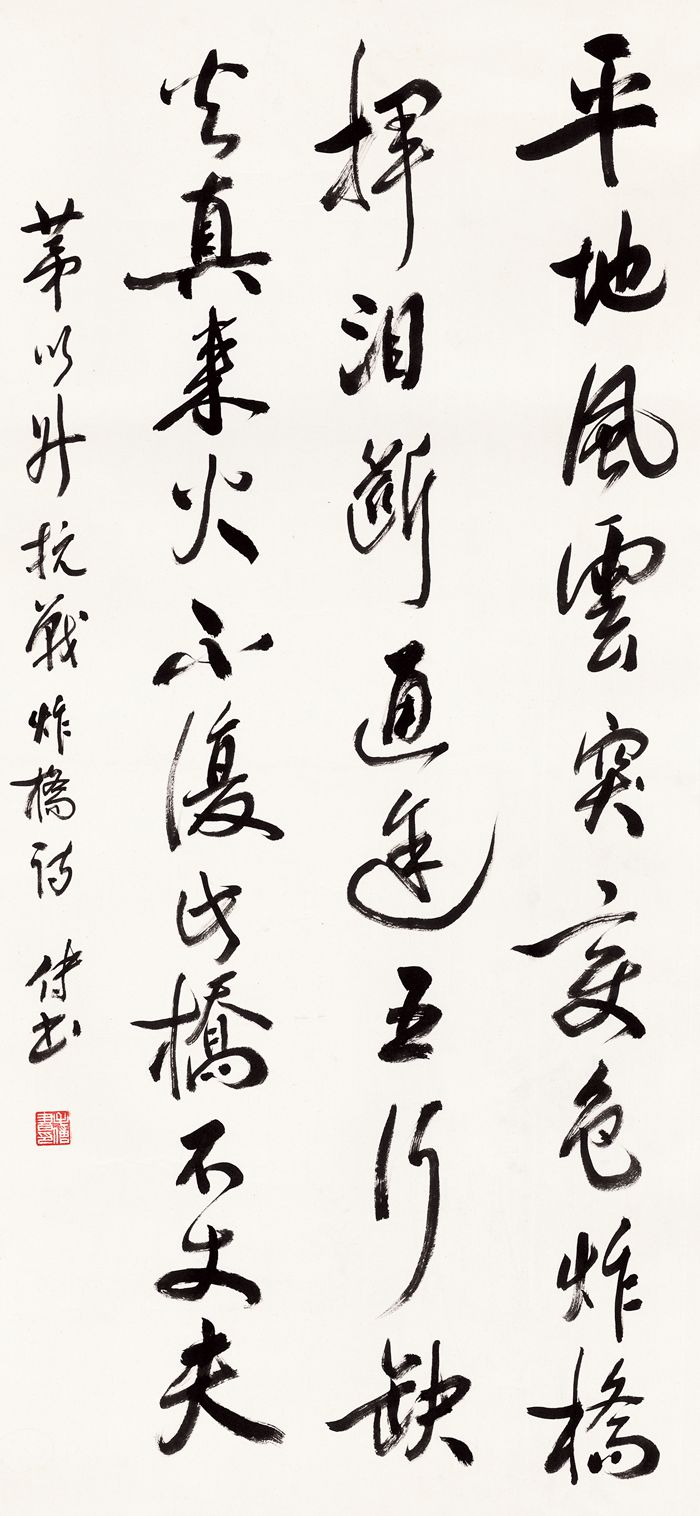 平地風雲突变色炸橋
揮泪断通途五行缺
火真来火不復此橋不丈夫
茅以升抗戰炸橋诗 书